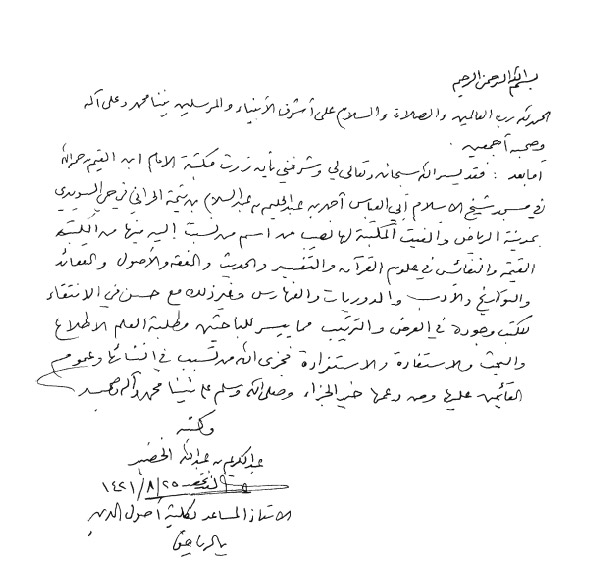 بسم الله الرحمن الرحيم
الحمد لله رب العالمين والصلاة والسلام على أشرف الأنبياء والمرسلين نبينا محمد وعلى آله
وصحبه أجمعين .
أما بعد : فقد يسر الله سبحانه وتعالى لي وشرفني بأن زرت مكتبة الامام ابن القيم رحمه الله
في مسجد شيخ الاسلام أبي العباس أحمد بن عبد الحليم بن عبد السلام بن تيمية الحراني في حي السويدي
بمدينة الرياض وألفيت المكتبة لها نصيب من اسم من نسبت إليه فيها من الكتب
القيمة والنفائس في علوم القرآن والتفسير والحديث والفقه والأصول والعقائد
والتواريخ والأدب والدوريات والفهارس وغير ذلك مع حسن في الانتقاء
للكتب وجودة في العرض والترتيب مما ييسر للباحثين وطلبة العلم الاطلاع
والبحث والاستفادة والاستزادة فجزى الله من تسبب في انشائها وعموم
القائمين عليها ومن دعمها خير الجزاء وصلى الله وسلم على نبينا محمد وآله وصحبه
وكتبه
عبد الكريم بن عبد الله الخضير
١٤٢١/٨/٢٥
الاستاذ المساعد بكلية أصول الدين
بالرياض